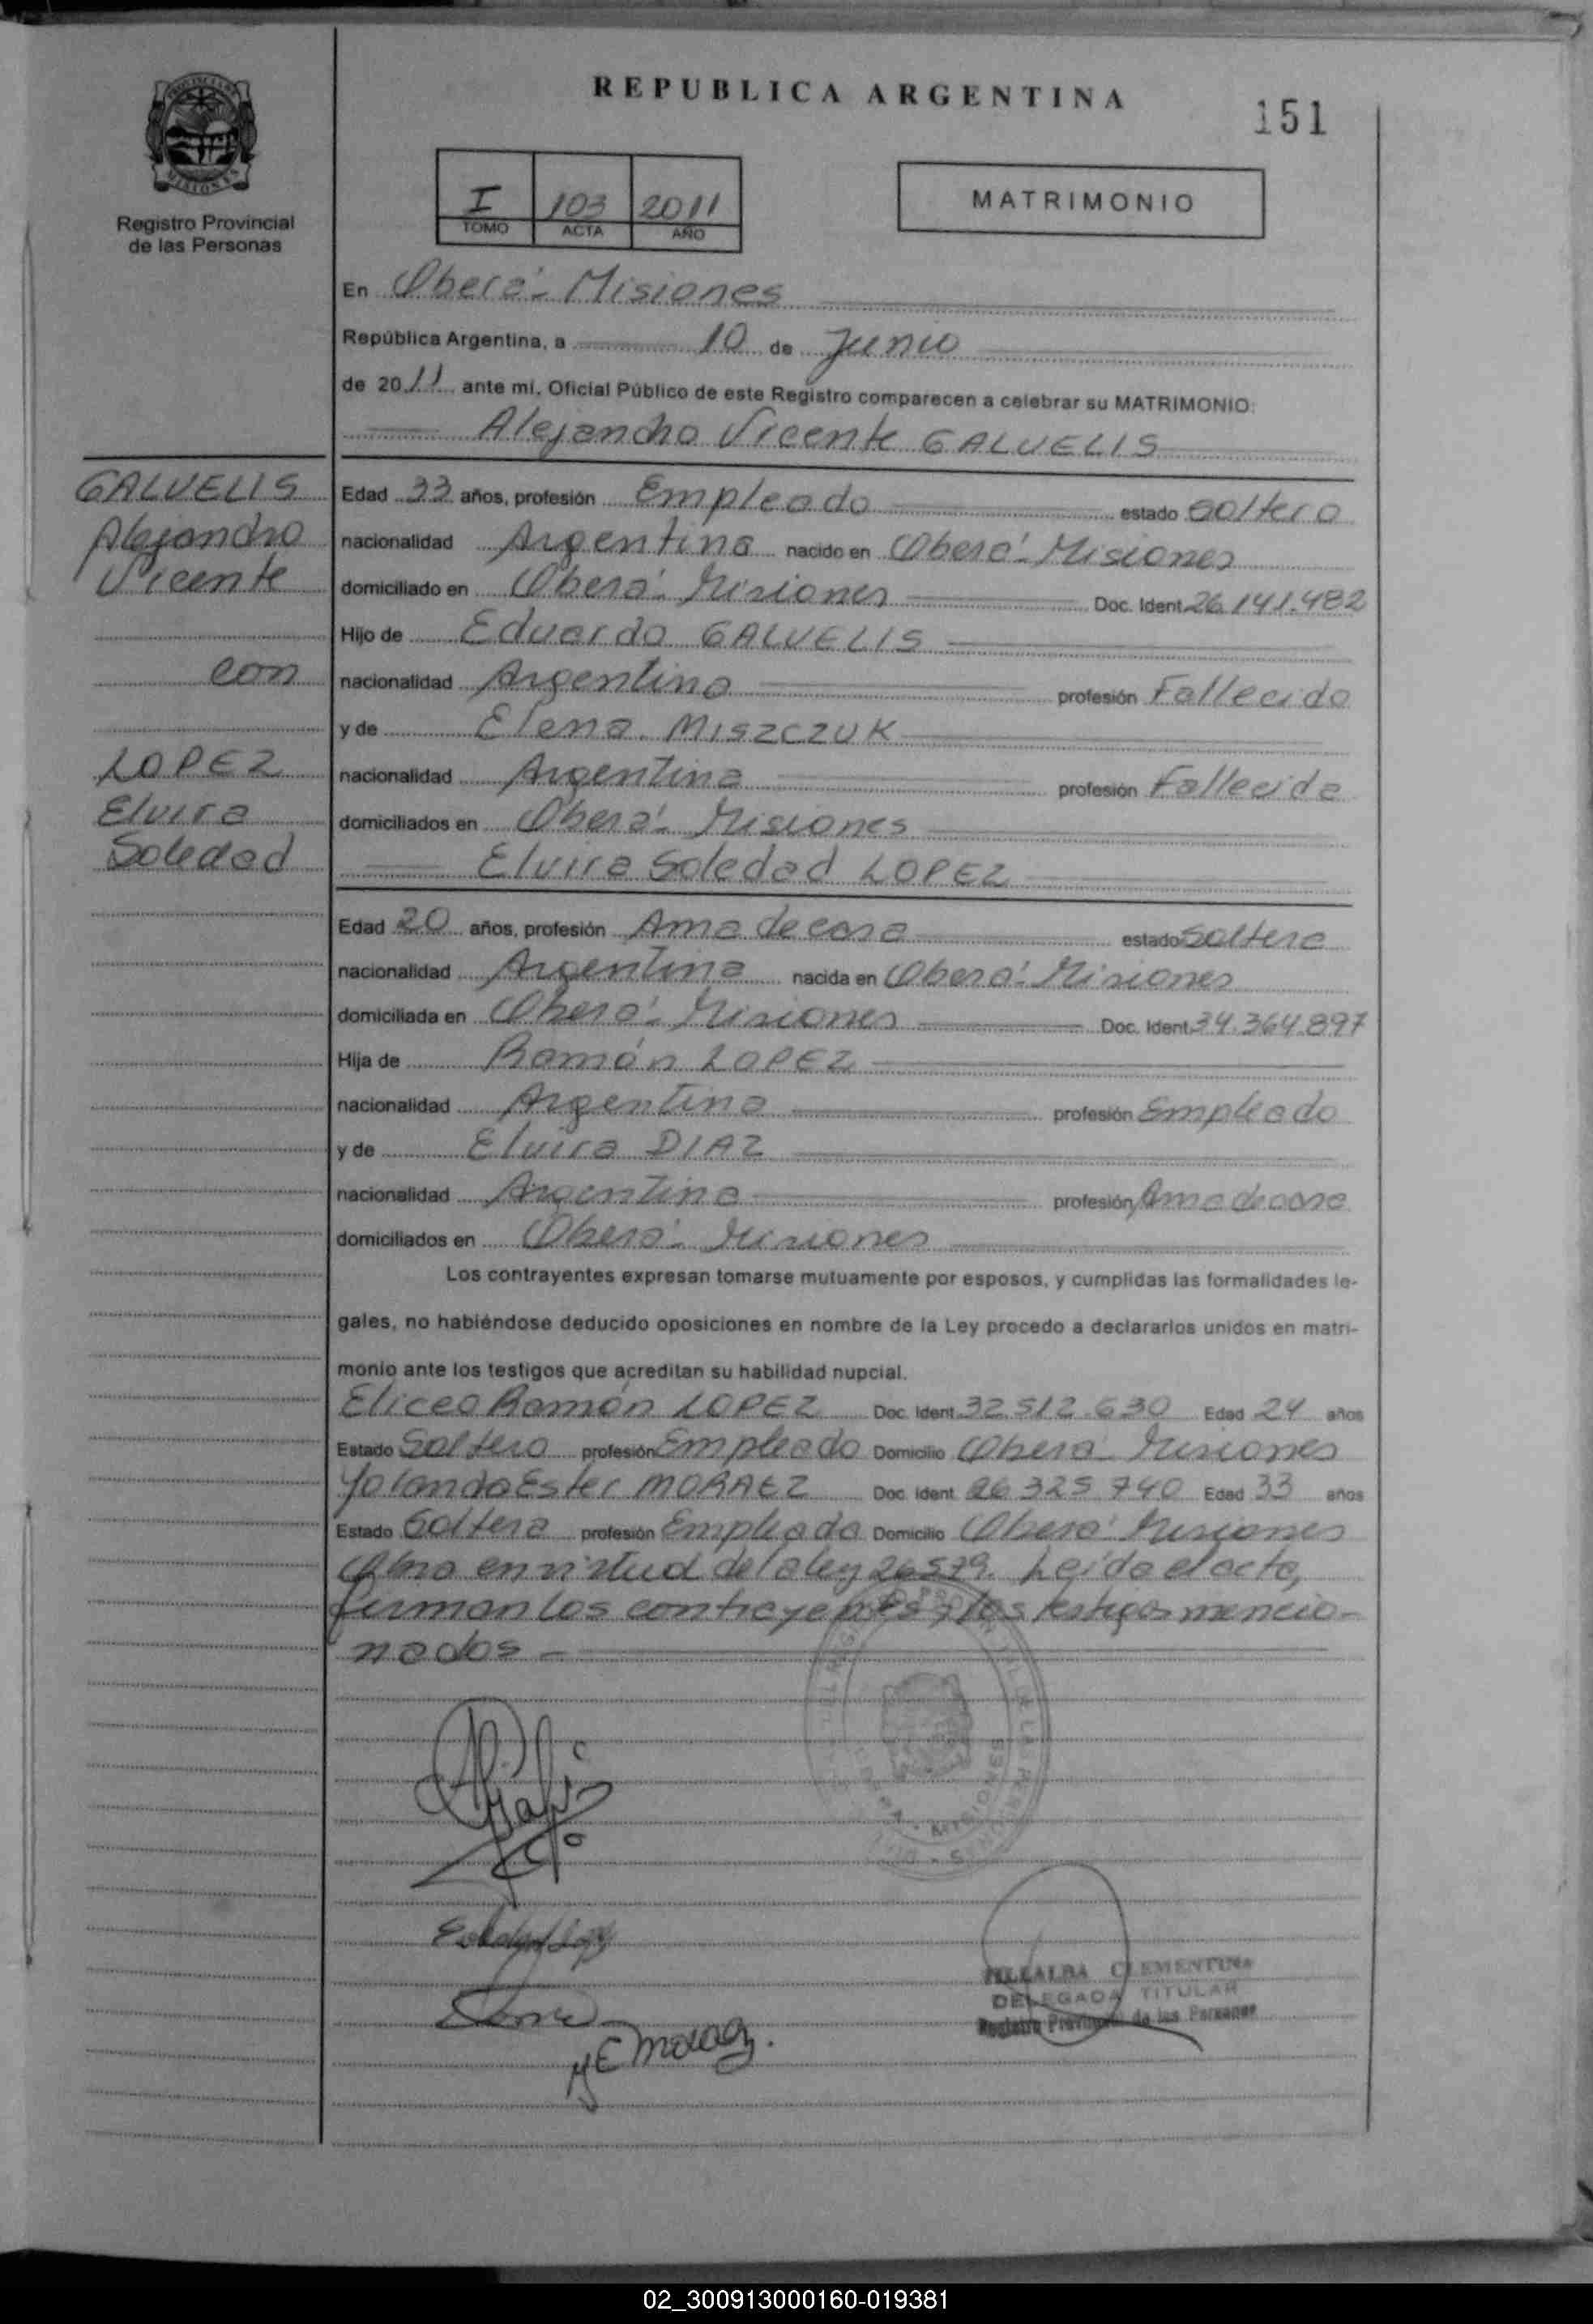 REPUBLICA ARGENTINA
151
PROVINCIA DE
MISIONES
Registro Provincial
de las Personas
I 103 2011
TOMO ACTA AÑO
MATRIMONIO
En Oberá - Misiones
República Argentina, a 10 de Junio
de 2011 ante mi, Oficial Público de este Registro comparecen a celebrar su MATRIMONIO:
Alejandro Vicente GALUELIS
GALUELIS
Alejandro
Vicente
con
LOPEZ
Elvira
Soledad
Edad 33 años, profesión Empleado estado Soltero
nacionalidad Argentina nacido en Oberá - Misiones
domiciliado en Oberá - Misiones Doc. Ident. 26.141.482
Hijo de Eduardo GALUELIS
nacionalidad Argentina profesión Fallecido
y de Elena MISZCZUK
nacionalidad Argentina profesión Fallecida
domiciliados en Oberá - Misiones
Elvira Soledad LOPEZ
Edad 20 años, profesión Ama de casa estado Soltera
nacionalidad Argentina nacida en Oberá - Misiones
domiciliada en Oberá - Misiones Doc. Ident. 34.364.897
Hija de Ramón LOPEZ
nacionalidad Argentina profesión Empleado
y de Elvira DIAZ
nacionalidad Argentina profesión Ama de casa
domiciliados en Oberá - Misiones
Los contrayentes expresan tomarse mutuamente por esposos, y cumplidas las formalidades le-
gales, no habiéndose deducido oposiciones en nombre de la Ley procedo a declararlos unidos en matri-
monio ante los testigos que acreditan su habilidad nupcial.
Eliceo Ramón LOPEZ Doc. Ident. 32.512.630 Edad 24 años
Estado Soltero profesión Empleado Domicilio Oberá Misiones
Yolanda Ester MORAEZ Doc. Ident. 26.325.740 Edad 33 años
Estado Soltera profesión Empleada Domicilio Oberá Misiones
Obra en virtud de la ley 26579. Leida el acta,
firman los contrayentes y los testigos mencio-
nados -
Y E Moraez.
CLEMENTINA
DELEGADA TITULAR
Registro Provincial de las Personas
02_300913000160-019381